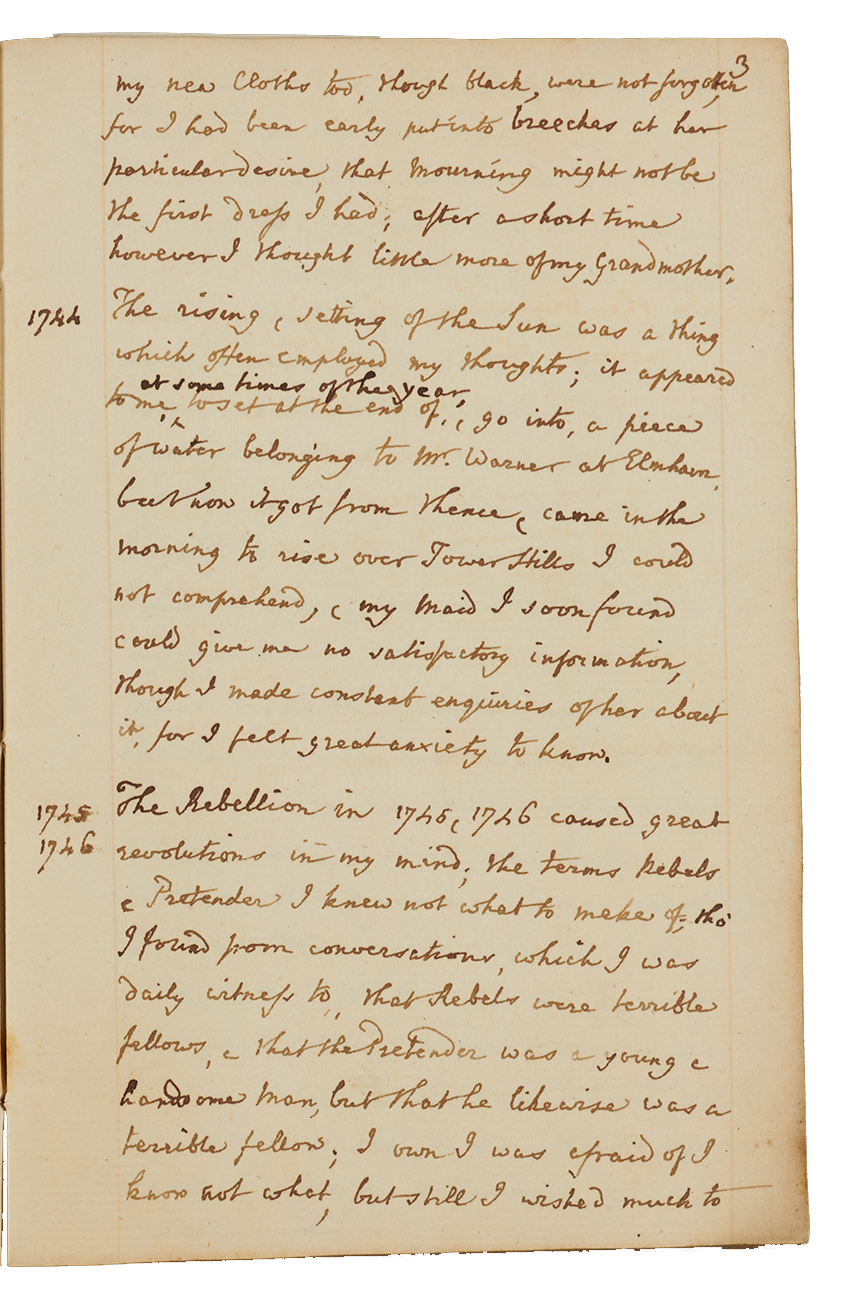 3
my new Cloths too, though black, were not forgotten,
for I had been early put into breeches at her
particular desire, that mourning might not be
the first dress I had; after a short time
however I thought little more of my Grandmother.
1744 The rising & setting of the Sun was a thing
which often employed my thoughts; it appeared
at some times of the year,
to me, ^ to set at the end of, & go into, a piece
of water belonging to Mr. Warner at Elmham,
but how it got from thence, & came in the
morning to rise over Tower Hills I could
not comprehend, & my Maid I soon found
could give me no satisfactory information,
though I made constant enquiries of her about
it, for I felt great anxiety to know.
1745 The Rebellion in 1745 & 1746 caused great
1746 revolutions in my mind; the terms Rebels
& Pretender I knew not what to make of; tho'
I found from conversations, which I was
daily witness to, that Rebels were terrible
fellows, & that the Pretender was a young &
handsome Man, but that he likewise was a
terrible fellow; I own I was afraid of I
know not what, but still I wished much to